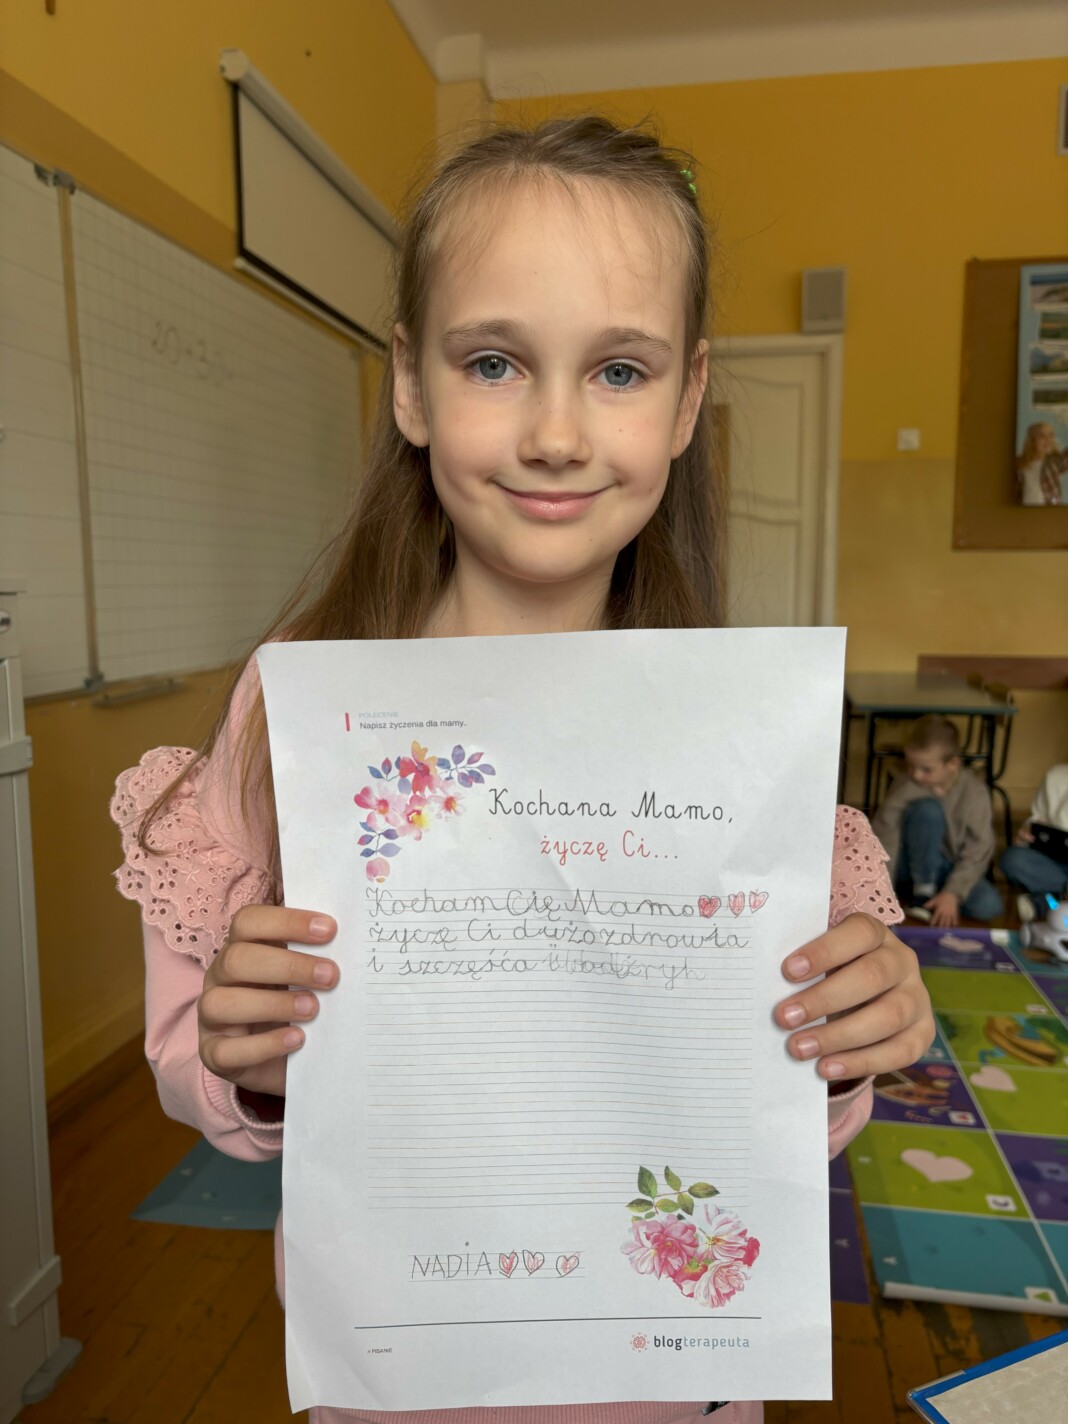 POLECENIE
Napisz życzenia dla mamy.
Kochana Mamo,
życzę Ci...
Kocham Cię Mamo
życzę Ci dużo zdrowia
i szczęśća
NADIA
PISANIE
blogterapeuta